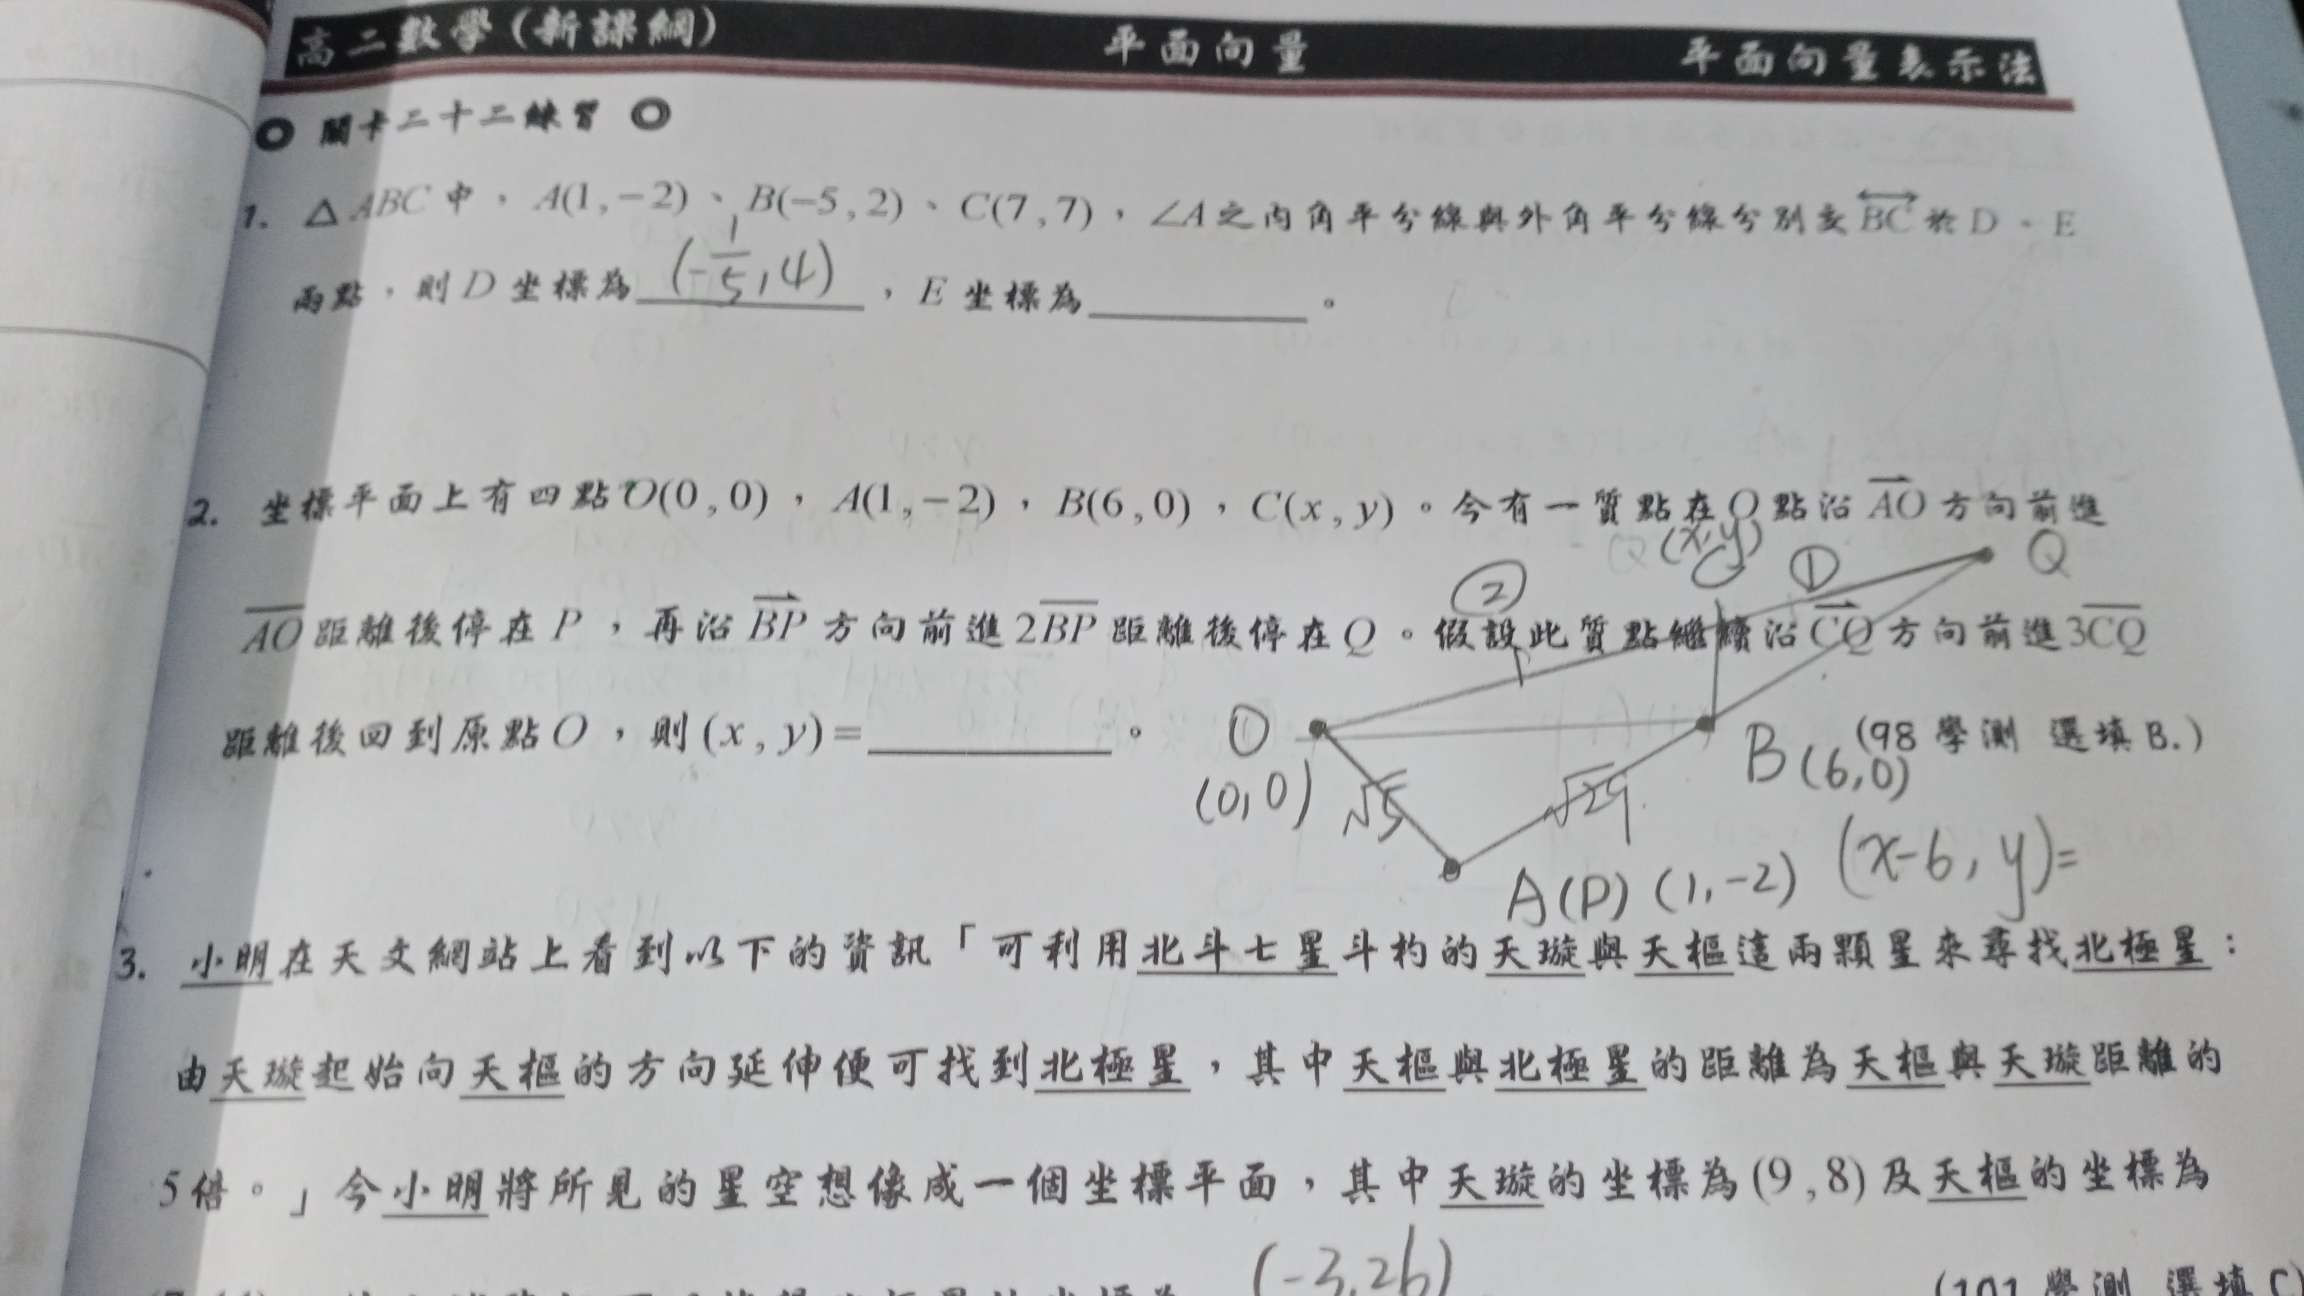 高二數學(新課綱) 平面向量 平面向量表示法
關卡二十二練習
1. △ABC中，A(1,-2)、B(-5,2)、C(7,7)，∠A之內角平分線與外角平分線分別交BC於D、E
兩點，則D坐標為 (-1/5, 4) ，E坐標為________。
2. 坐標平面上有四點O(0,0)，A(1,-2)，B(6,0)，C(x,y)。今有一質點在O點沿AO方向前進
(x,y)
C ① Q
②
AO距離後停在P，再沿BP方向前進2BP距離後停在Q。假設此質點繼續沿CQ方向前進3CQ
距離後回到原點O，則(x,y)=________。 (98學測 選填B.)
O
(0,0) √5 √29 B(6,0)
A(P)(1,-2) (x-6,y)=
3. 小明在天文網站上看到以下的資訊「可利用北斗七星斗杓的天璇與天樞這兩顆星來尋找北極星：
由天璇起始向天樞的方向延伸便可找到北極星，其中天樞與北極星的距離為天樞與天璇距離的
5倍。」今小明將所見的星空想像成一個坐標平面，其中天璇的坐標為(9,8)及天樞的坐標為
(-3,26)
(101學測 選填C